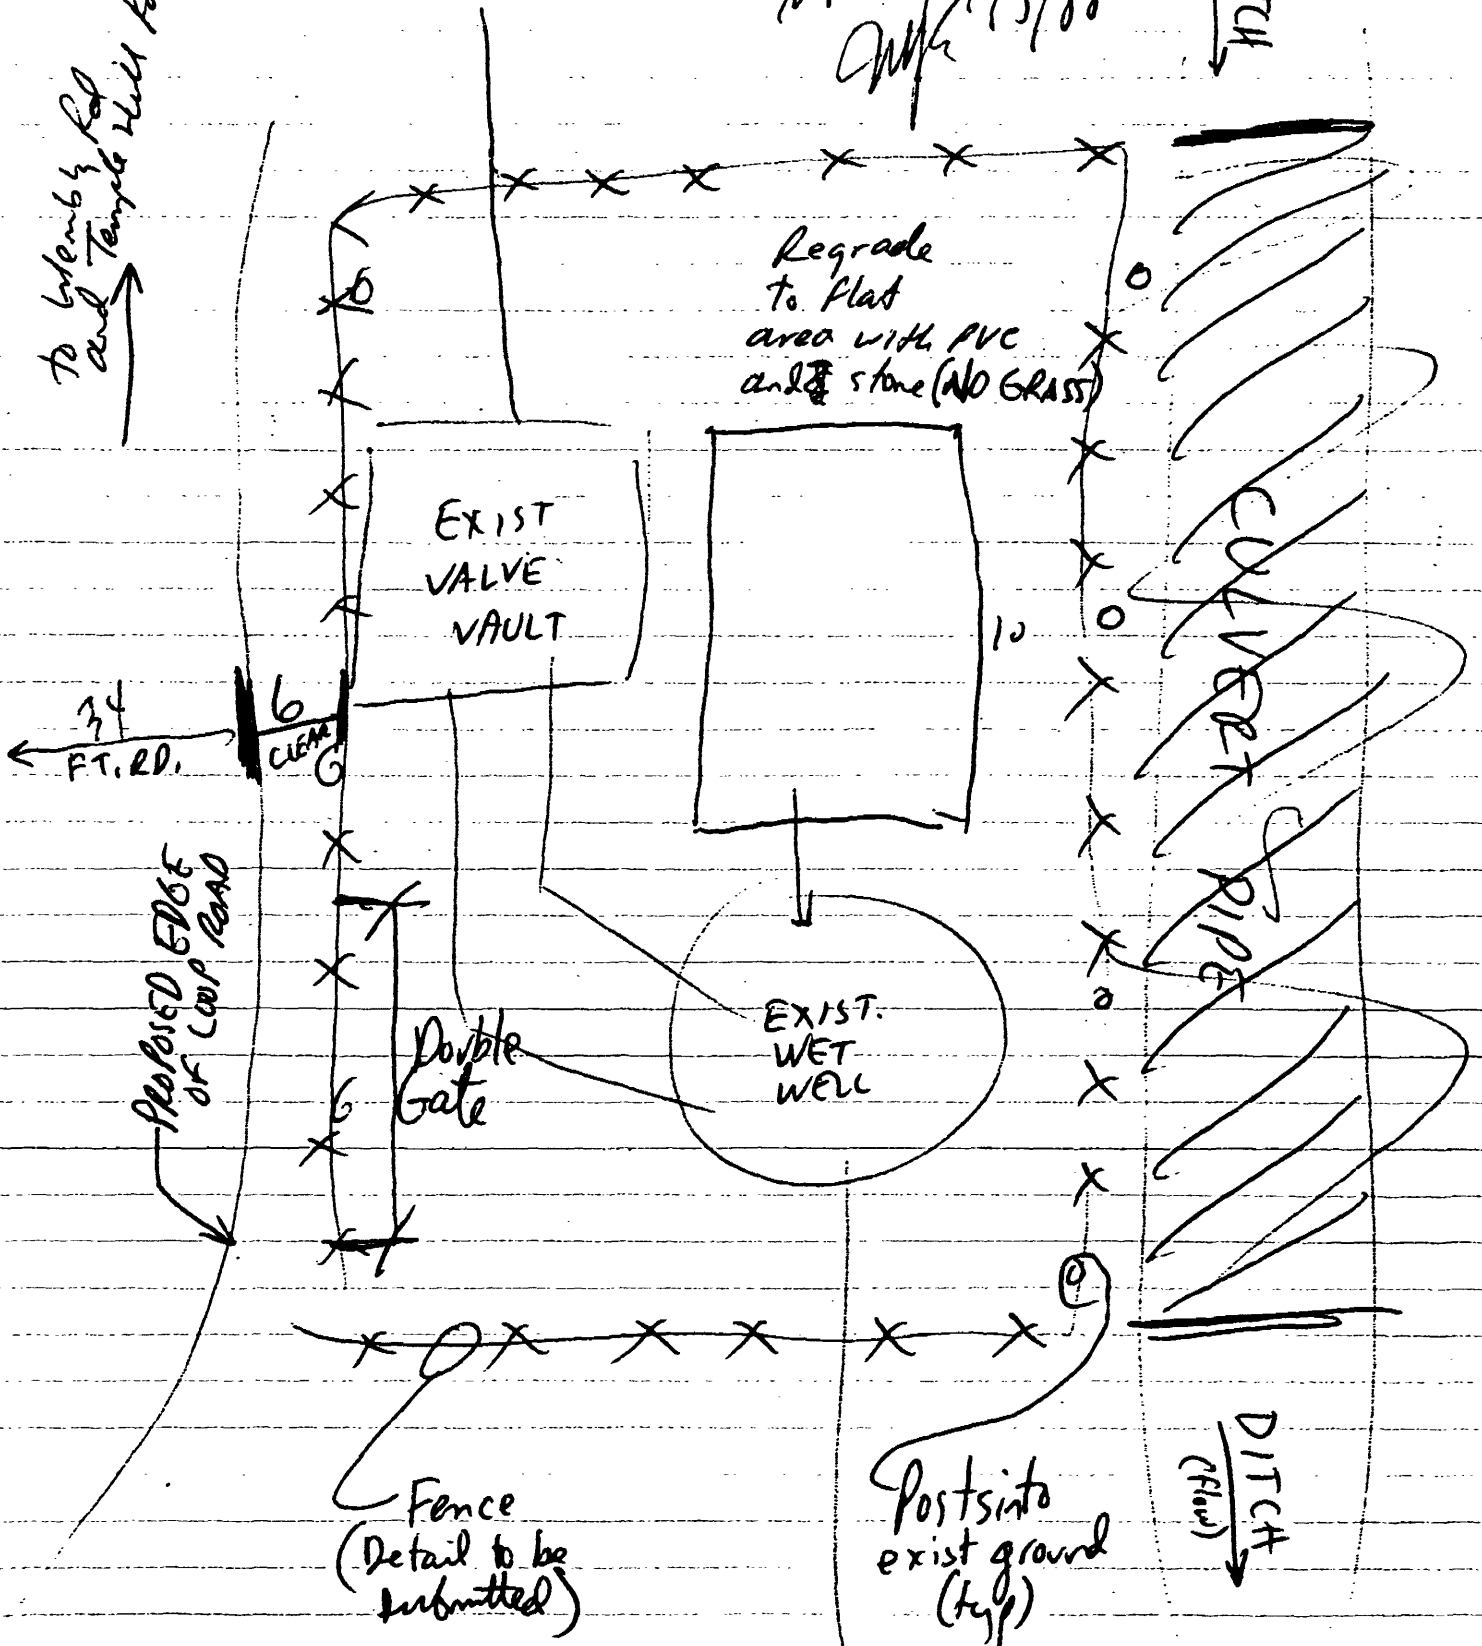 TCH
to
and Temple Hill
Regrade
to flat
area with PVC
and stone (NO GRASS)
EXIST
VALVE
VAULT
10
CULVERT PIPE
34
FT. RD.
6
CLEAR
PROPOSED EDGE
OF LOOP ROAD
Double
Gate
EXIST.
WET
WELL
Fence
(Detail to be
submitted)
Posts into
exist ground
(typ)
DITCH
(flow)